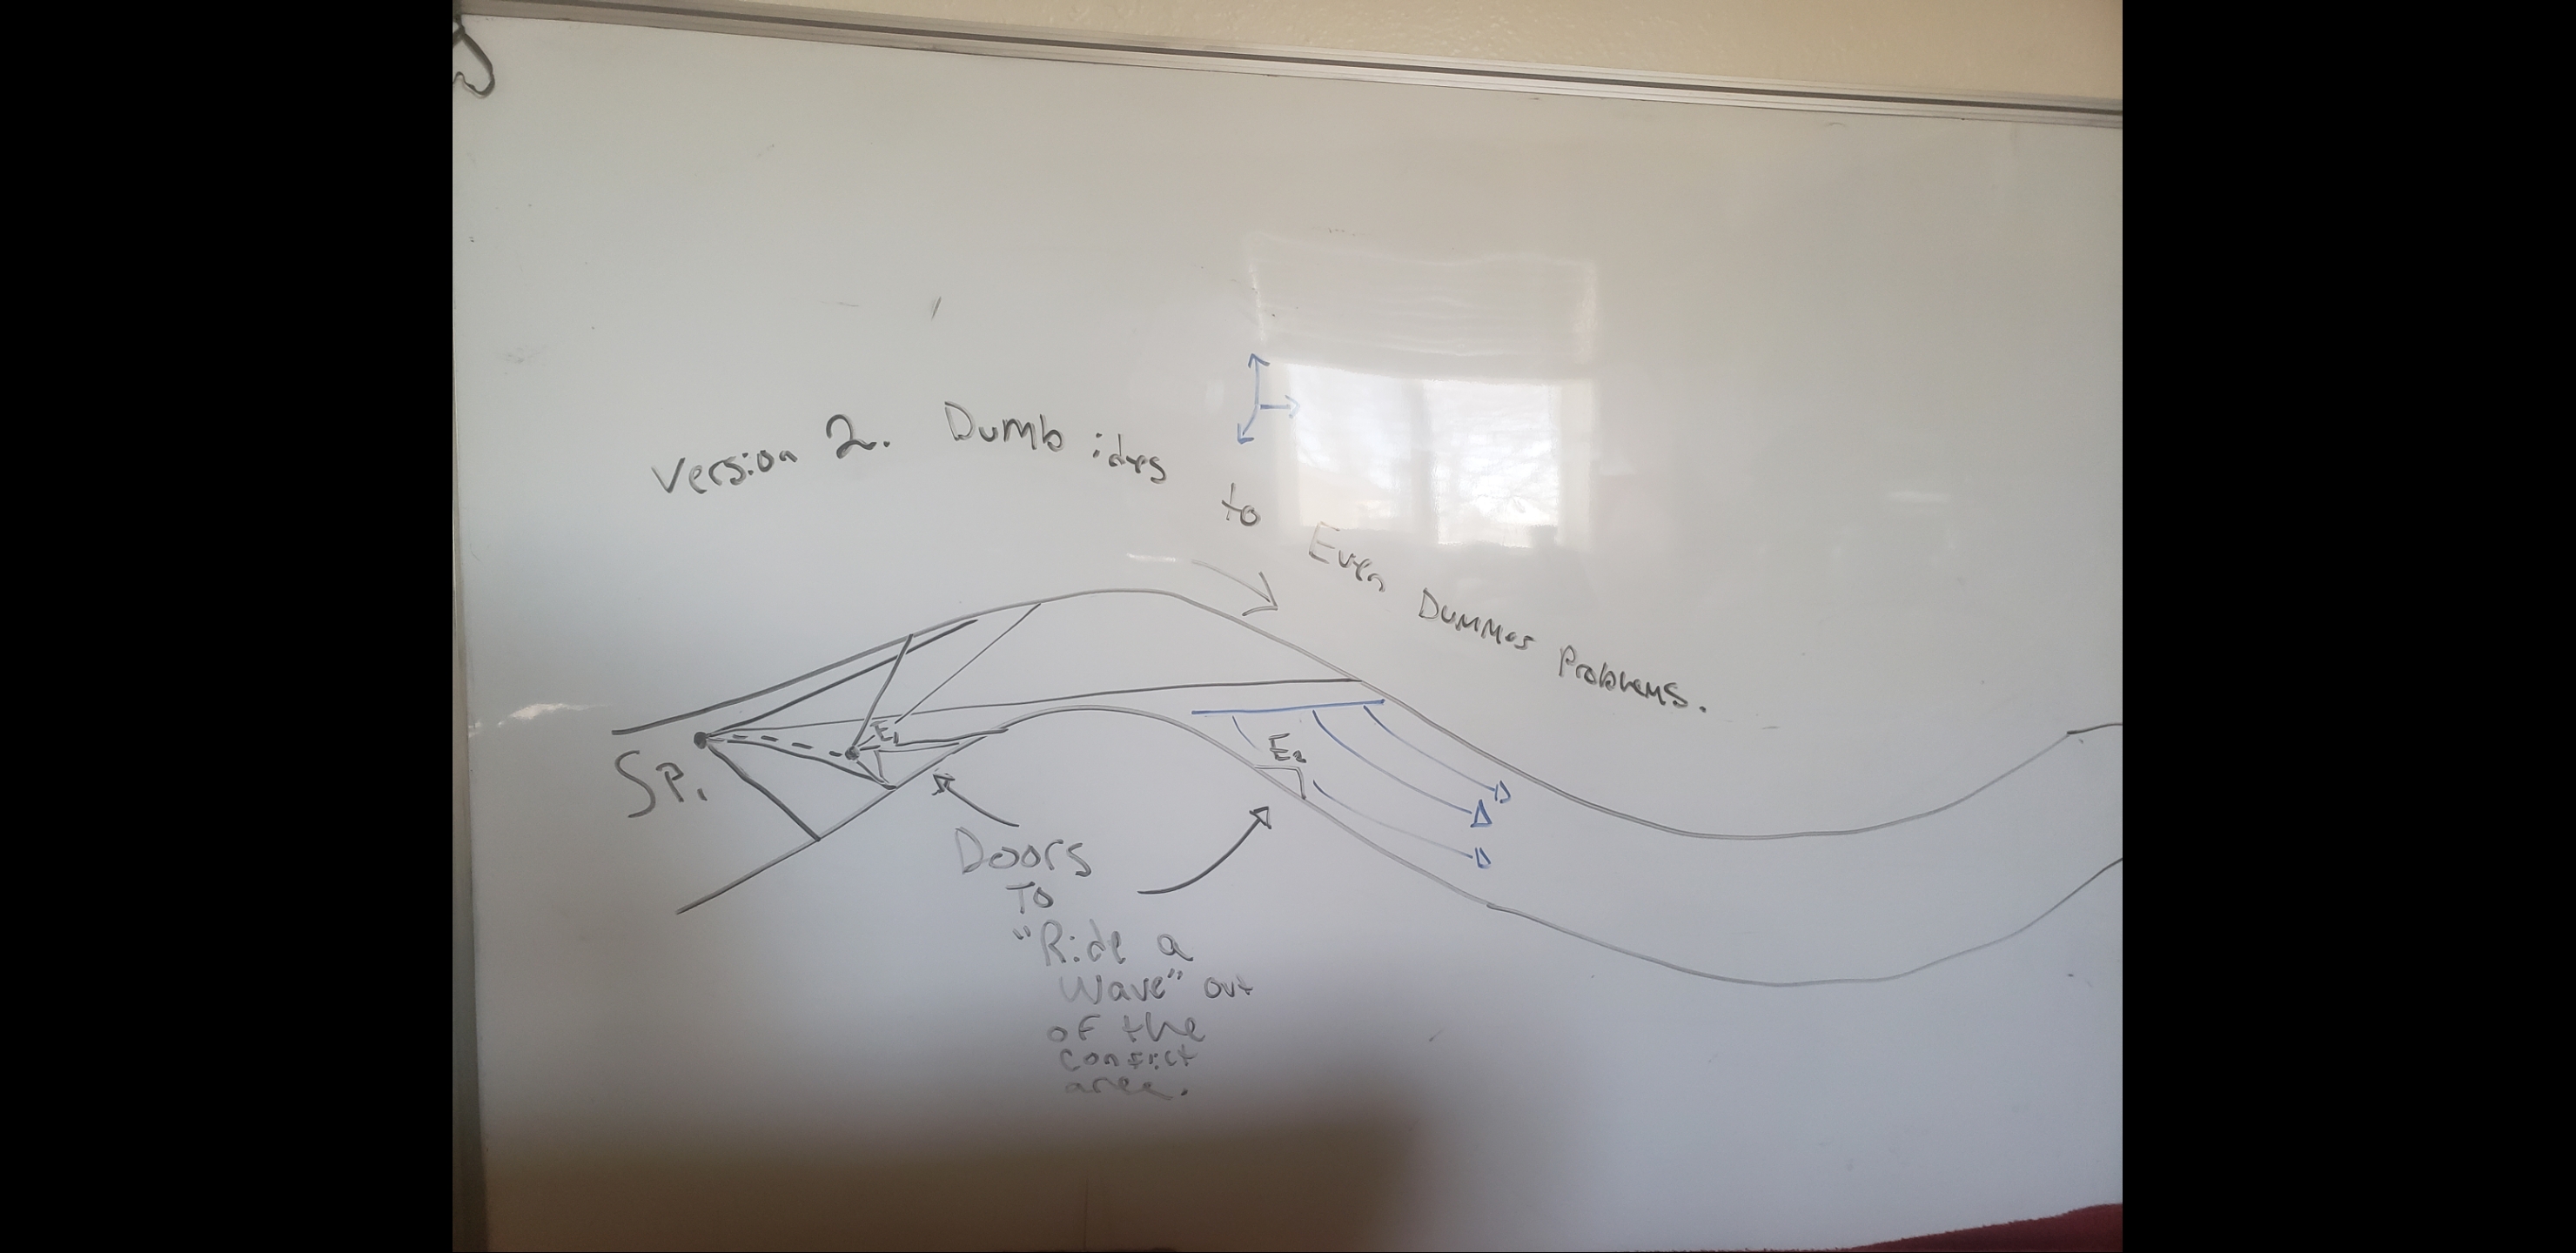 Version 2. Dumb ides to Even Dummes Problems.
SP.
E1
E2
Doors
To
"Ride a
Wave" out
of the
confict
area.